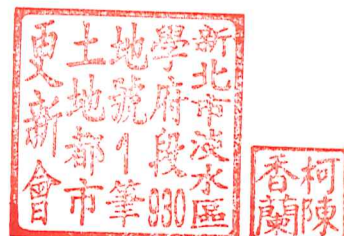 新北市淡水區
學府段930
地號1筆
土地都市
更新會
柯陳
香蘭